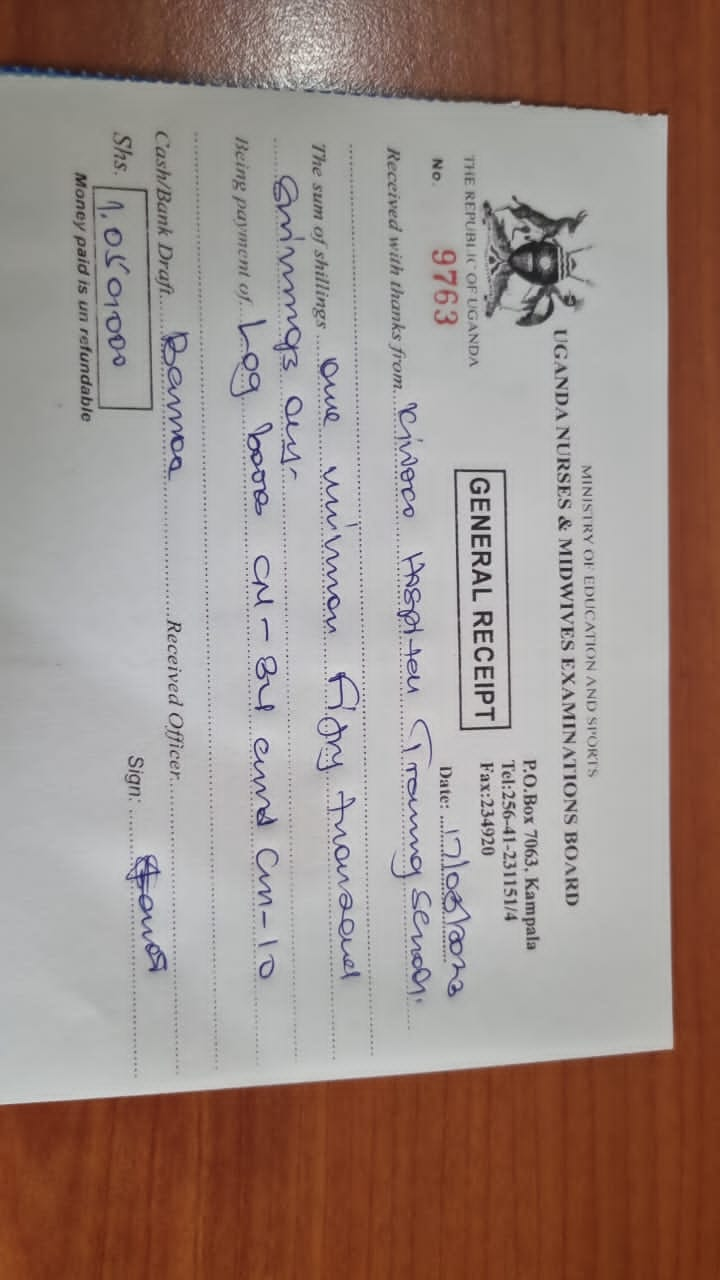 MINISTRY OF EDUCATION AND SPORTS
UGANDA NURSES & MIDWIVES EXAMINATIONS BOARD
THE REPUBLIC OF UGANDA
P.O.Box 7063, Kampala
Tel:256-41-231151/4
Fax:234920
GENERAL RECEIPT
No. 9763
Date: 17/08/2023
Received with thanks from Hospital Training School.
The sum of shillings one million Fifty thousand
shillings only.
Being payment of Log book CN-84 and CM-10
Cash/Bank Draft Received Officer
Shs. 1,050,000
Sign:
Money paid is un refundable